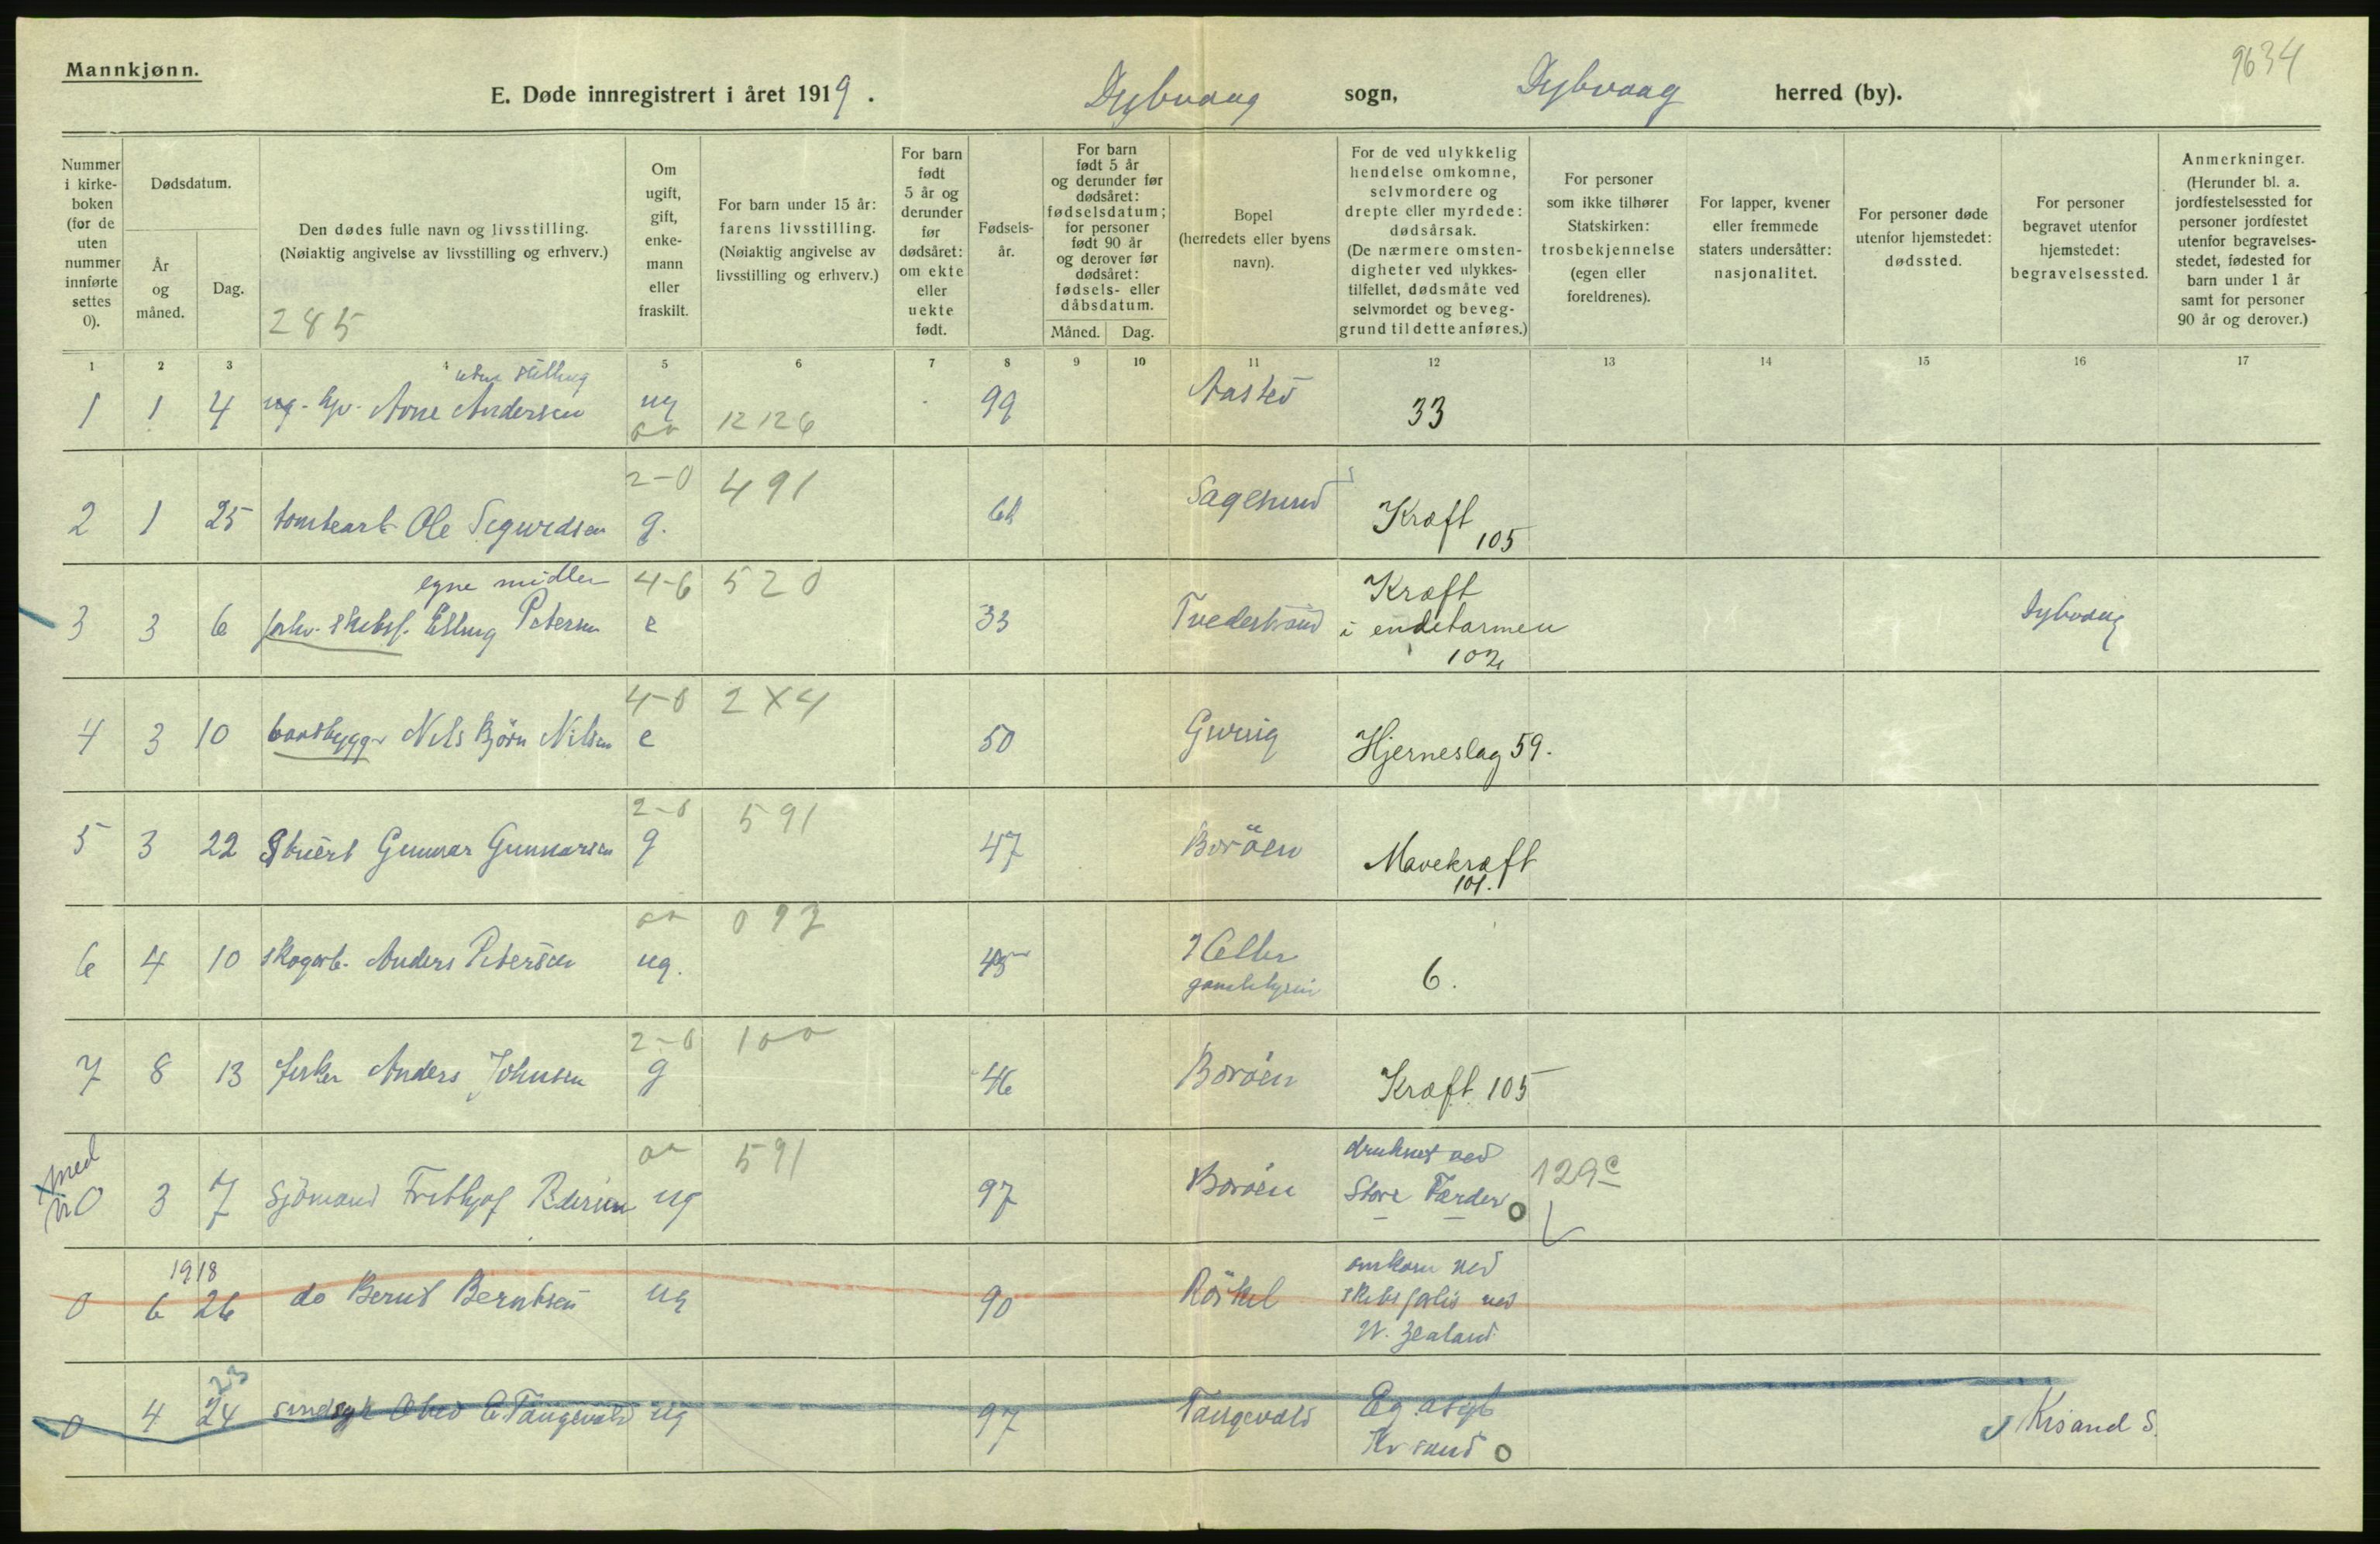 Mannkjønn.
9634
E. Døde innregistrert i året 1919. Dybvaag sogn, Dybvaag herred (by).
Nummer i kirkeboken (for de uten nummer innførte settes 0).
Dødsdatum.
År og måned.
Dag.
Den dødes fulle navn og livsstilling.
(Nøiaktig angivelse av livsstilling og erhverv.)
285
Om ugift, gift, enkemann eller fraskilt.
For barn under 15 år: farens livsstilling. (Nøiaktig angivelse av livsstilling og erhverv.)
For barn født 5 år og derunder før dødsåret: om ekte eller uekte født.
Fødselsår.
For barn født 5 år og derunder før dødsåret: fødselsdatum; for personer født 90 år og derover før dødsåret: fødsels- eller dåbsdatum.
Måned. Dag.
Bopel (herredets eller byens navn).
For de ved ulykkelig hendelse omkomne, selvmordere og drepte eller myrdede: dødsårsak. (De nærmere omstendigheter ved ulykkestilfellet, dødsmåte ved selvmordet og beveggrund til dette anføres.)
For personer som ikke tilhører Statskirken: trosbekjennelse (egen eller foreldrenes).
For lapper, kvener eller fremmede staters undersåtter: nasjonalitet.
For personer døde utenfor hjemstedet: dødssted.
For personer begravet utenfor hjemstedet: begravelsessted.
Anmerkninger. (Herunder bl. a. jordfestelsessted for personer jordfestet utenfor begravelsesstedet, fødested for barn under 1 år samt for personer 90 år og derover.)
1 2 3 4 5 6 7 8 9 10 11 12 13 14 15 16 17
uten stilling
1 1 4 Arne Andersen ug 12126 99 Aasted 33
2-0 491
2 1 25 Ole Sigurdsen g. Sagesund Kræft 105
egne midler 4-6 520
3 3 6 forhv. skibsf. Elling Petersen e 33 Tvedestrand Kræft i endetarmen 102 Dybvaag
4-0 2X4
4 3 10 baadbygger Nils Bjørn Nilsen e 50 Hjerneslag 59.
2-0 591
5 3 22 Gunnar Gunnarsen g 47 Borøen Mavekræft 101.
093
6 4 10 skogarb. Anders Petersen ug. 45 gamlehjem 6.
2-0 100
7 8 13 fisker Anders Johnsen g 46 Borøen Kræft 105
med
591
0 3 7 Sjømand Frithjof Pedersen ug 97 Borøen druknet ved Store Færder 0 129c
1918
0 6 26 do Bernt Berntsen ug 90 Røskel omkom ved skibsforlis ved N. Zealand
23
0 4 24 sindsyk Tangevald ug 97 Tangevald Eg asyl Kr sand 0 Krsand S.